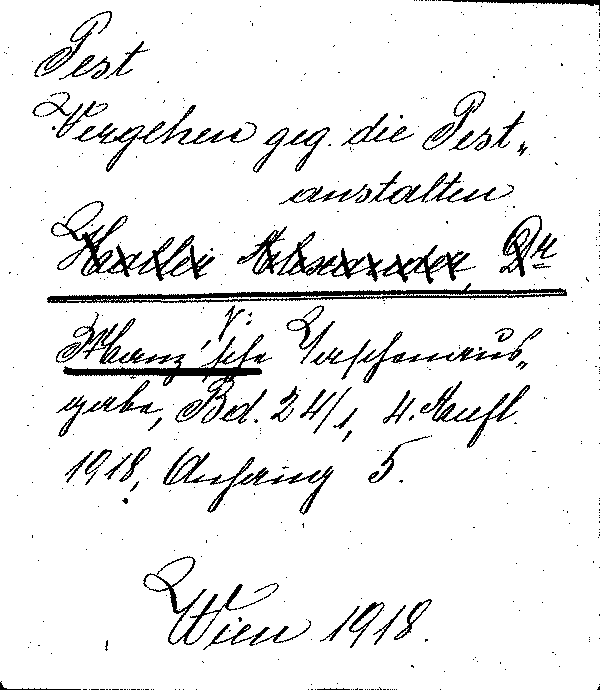 Pest
Vergehen geg. die Pest„
anstalten
Alexander, Dr
Manz'sche Taschenaus„
gabe, Bd. 24/1, 4. Aufl.
1918, Anhang 5.
Wien 1918.